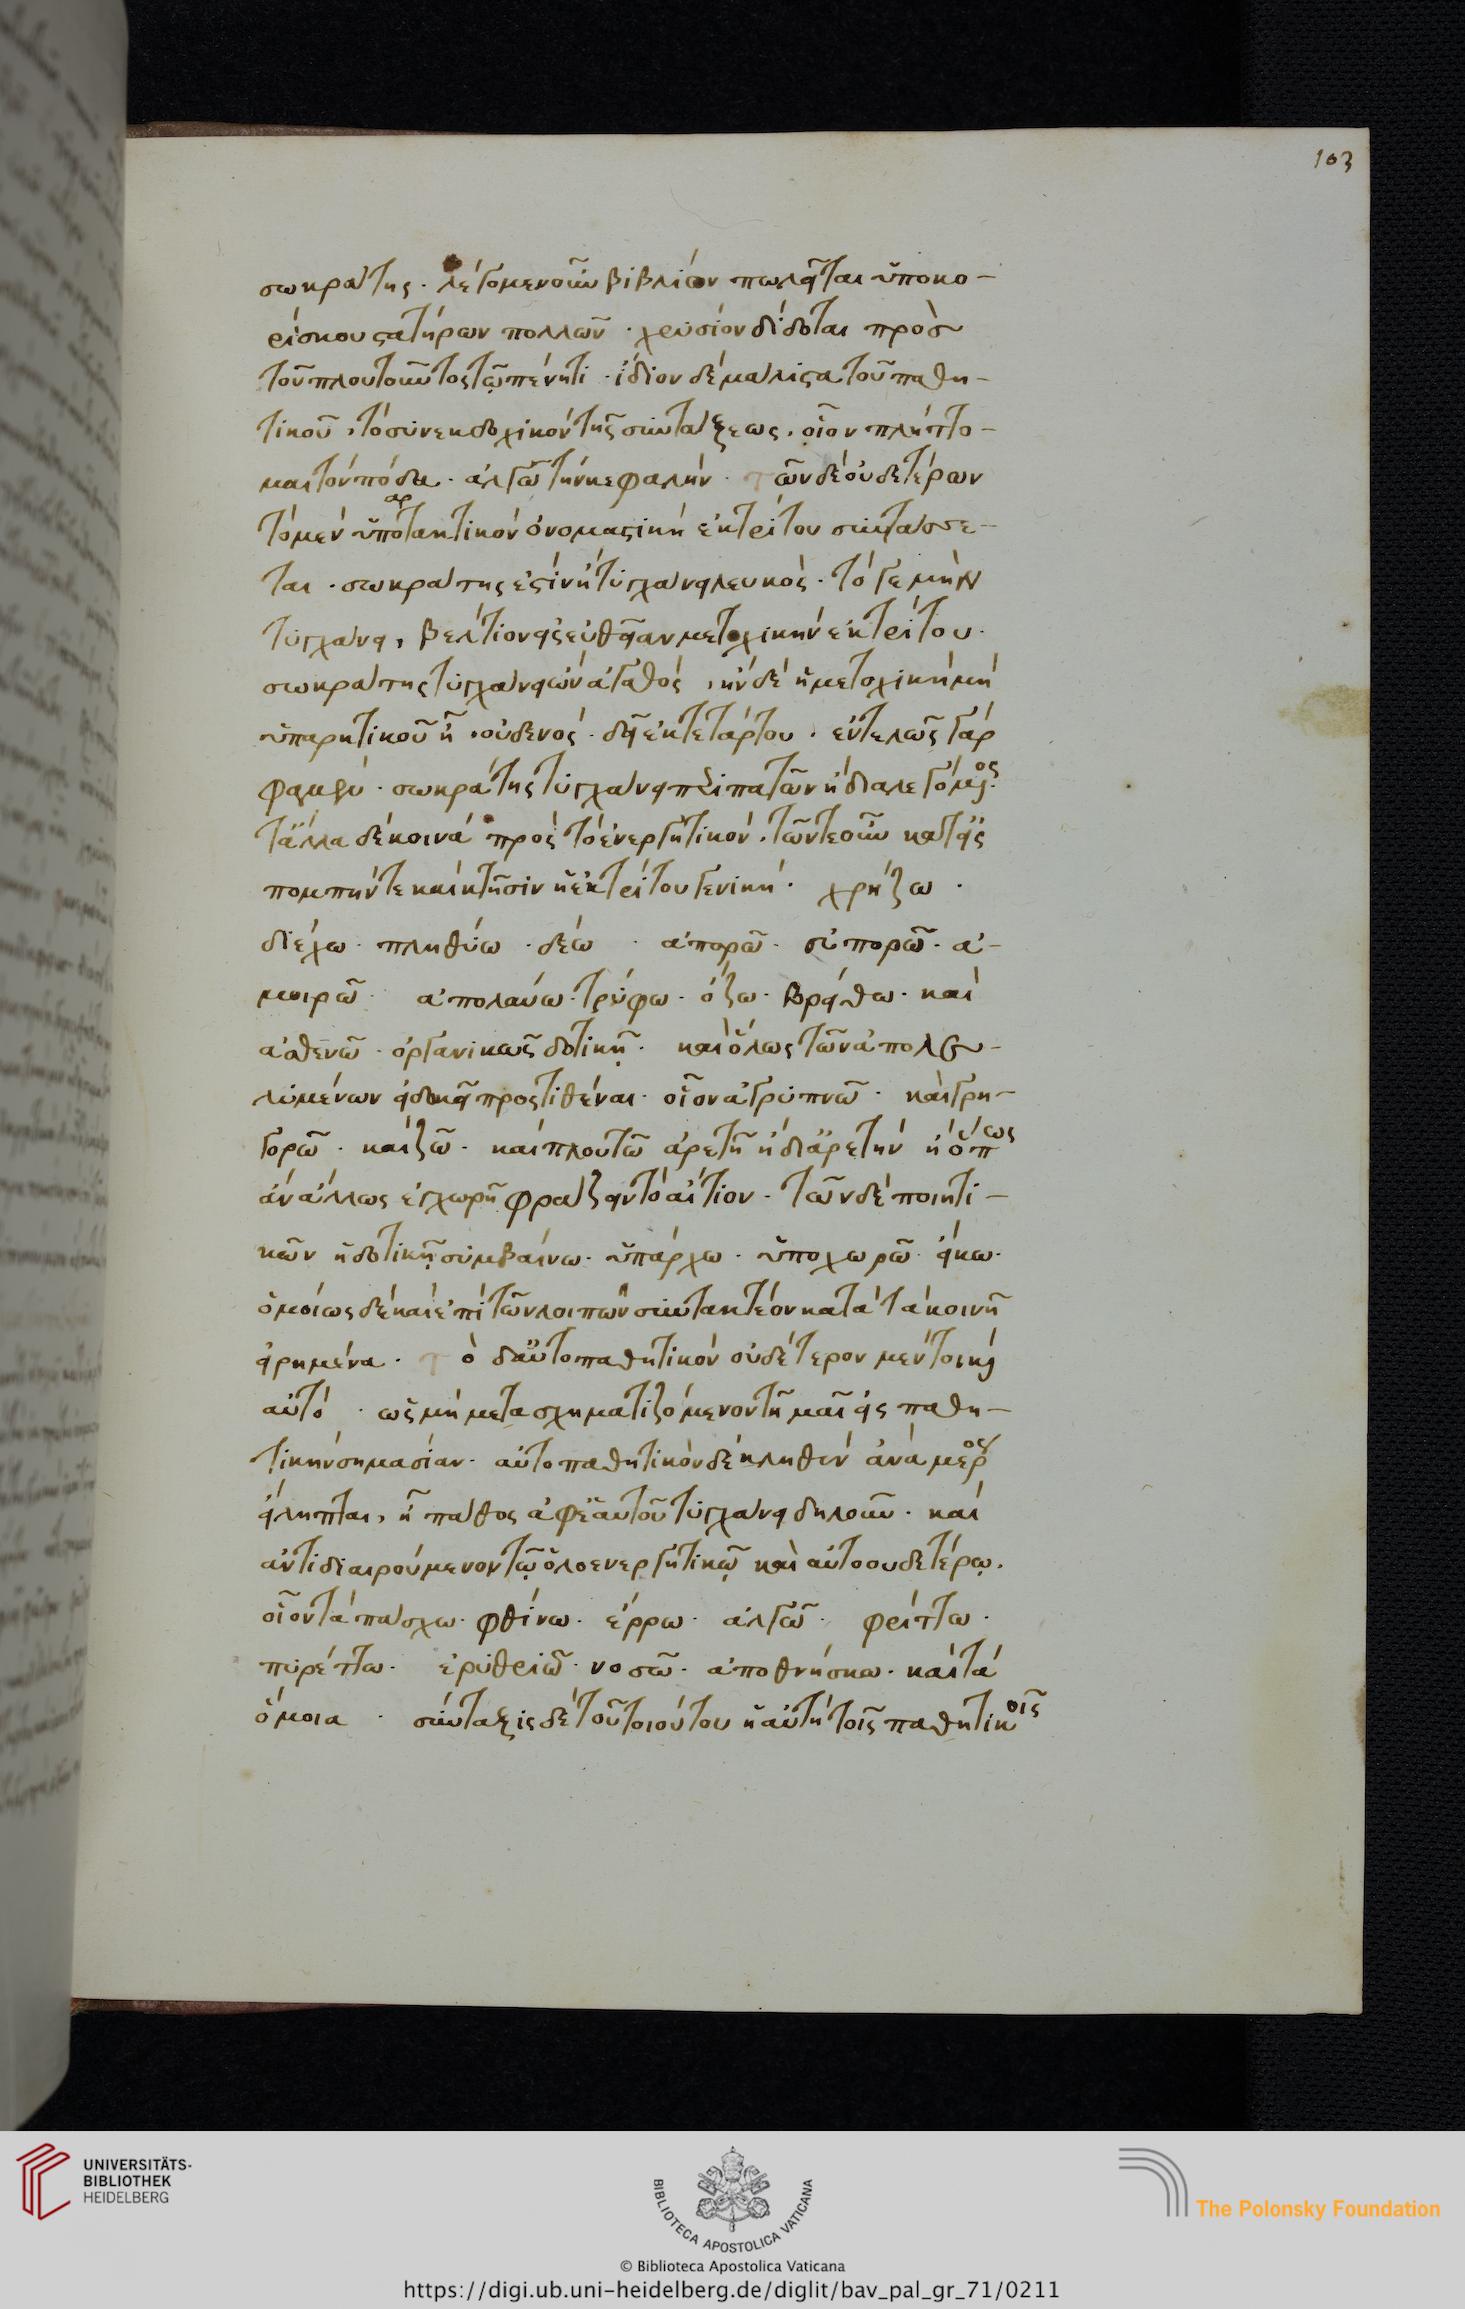 103
σωκράτης. λέγομεν οὖν βιβλίον πωλεῖται ὑπὸ κο-
ρίσκου στατήρων πολλῶν. χρυσίον δίδοται πρὸς
τοῦ πλουτοῦντος τῷ πένητι. ἴδιον δὲ μάλιστα τοῦ παθη-
τικοῦ, τὸ συνεκδοχικὸν τῆς συντάξεως, οἷον πλήττο-
μαι τὸν πόδα. ἀλγῶ τὴν κεφαλήν. τῶν δὲ οὐδετέρων
τὸ μὲν ὑπαρκτικὸν ὀνομαστικῇ ἐκ τρίτου συντάσσε-
ται. σωκράτης ἐστὶν ἢ τυγχάνει λευκός. τό γε μὴν
τυγχάνει, βέλτιον εἰς εὐθεῖαν μετοχικὴν ἐκ τρίτου.
σωκράτης τυγχάνει ὢν ἀγαθός, ἢν δὲ ἡ μετοχικὴ μὴ
ὑπαρκτικοῦ ᾖ, οὐδενὸς δεῖ ἐκ τετάρτου. ἐντελῶς γάρ
φαμεν. σωκράτης τυγχάνει περιπατῶν ἢ διαλεγόμενος.
τἄλλα δὲ κοινὰ πρὸς τὸ ἐνεργητικόν. τῶν τε οὖν κατ' εἰς
πομπήν τε καὶ κτῆσιν ἡ ἐκ τρίτου γενική. χρήζω.
διέχω. πληθύω. δέω. ἀπορῶ. εὐπορῶ. ἀ-
μοιρῶ. ἀπολαύω. τρύφω. ὄζω. βρίθω. καὶ
ἀσθενῶ. ὀργανικῶς δοτικῇ. καὶ ὅλως τῶν ἀπολε-
λυμένων εἰ δοκεῖ προστιθέναι. οἷον ἀγρυπνῶ. καὶ γρη-
γορῶ. καὶ ζῶ. καὶ πλουτῶ ἀρετῇ ἢ δι' ἀρετὴν ἢ ὅπως
ἂν ἄλλως ἐγχωρῇ φράζειν τὸ αἴτιον. τῶν δὲ ποιητι-
κῶν ἡ δοτικῇ συμβαίνω. ὑπάρχω. ὑποχωρῶ. εἴκω.
ὁμοίως δὲ καὶ ἐπὶ τῶν λοιπῶν συντακτέον κατὰ τὰ κοινῇ
εἰρημένα. τὸ δ' αὐτοπαθητικὸν οὐδέτερον μέν τοι καὶ
αὐτό. ὡς μὴ μετασχηματιζόμενον τῇ μαι εἰς παθη-
τικὴν σημασίαν. αὐτοπαθητικὸν δὲ κληθὲν ἀνὰ μέρος
εἴληπται, ᾗ πάθος ἀφ' ἑαυτοῦ τυγχάνει δηλοῦν. καὶ
ἀντιδιαιρούμενον τῷ ὁλοενεργητικῷ καὶ αὐτοουδετέρῳ.
οἷον τὰ πάσχω. φθίνω. ἔρρω. ἀλγῶ. φρίττω.
πυρέττω. ἐρυθριῶ. νοσῶ. ἀποθνήσκω. καὶ τὰ
ὅμοια. σύνταξις δὲ τοῦ τοιούτου ἡ αὐτὴ τοῖς παθητικοῖς
UNIVERSITÄTS-
BIBLIOTHEK
HEIDELBERG
BIBLIOTECA APOSTOLICA VATICANA
The Polonsky Foundation
© Biblioteca Apostolica Vaticana
https://digi.ub.uni-heidelberg.de/diglit/bav_pal_gr_71/0211